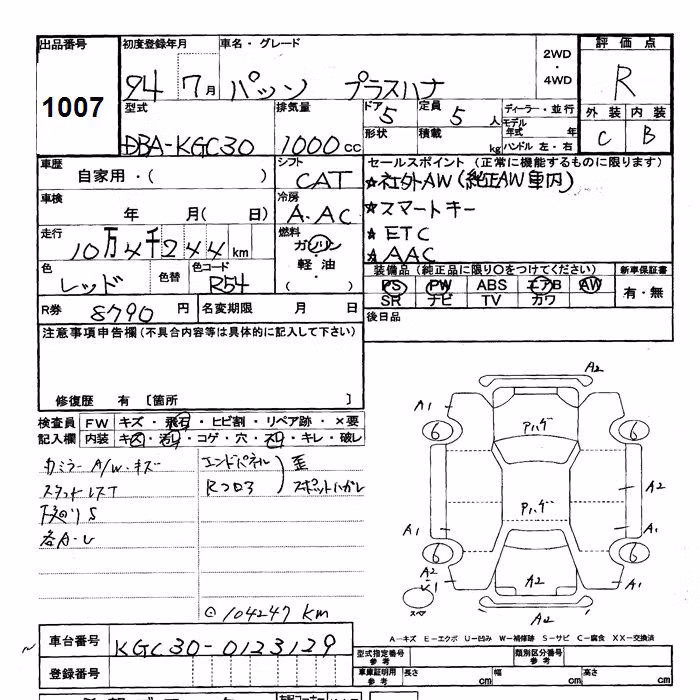 出品番号 初度登録年月 車名・グレード 2WD ・ 4WD 評価点
1007 24 7月 パッソ プラスハナ R
型式 排気量 ドア 5 定員 5 人 ディーラー・並行 外装 内装
DBA-KGC30 1000 cc 形状 積載 kg モデル年式 年 ハンドル 左・右 C B
車歴 自家用・( ) シフト CAT セールスポイント (正常に機能するものに限ります)
☆社外AW(純正AW車内)
車検 年 月( 日) 冷房 A.AC ☆スマートキー
走行 10万4千244km 燃料 ガソリン ★ETC
色 レッド 色替 色コード R54 軽油・( ) ★AAC
装備品 (純正品に限り○をつけてください) 新車保証書
PS PW ABS エアB AW 有・無
SR ナビ TV カワ
R券 8790 円 名変期限 月 日 後日品
注意事項申告欄(不具合内容等は具体的に記入して下さい)
修復歴 有 〔箇所 〕
検査員 FW キズ・飛石・ヒビ割・リペア跡・×要
記入欄 内装 キズ・汚れ・コゲ・穴・スレ・キレ・破レ
カミラーA/W・キズ エンドパネル 歪
スタッドレスT Rフロア スポットハガレ
下廻りS
各A-U
⊙104247km
A2
A1 6 Pハゲ 6
Pハゲ A2
A1 A1
6 A2 U1 A2 6 A1
スペア A2
A-キズ E-エクボ U-凹み W-補修跡 S-サビ C-腐食 XX-交換済
車台番号 KGC30-0123129
登録番号
型式指定番号 参考 類別区分番号 参考
車庫証明用 参考 長さ cm 幅 cm 高さ cm